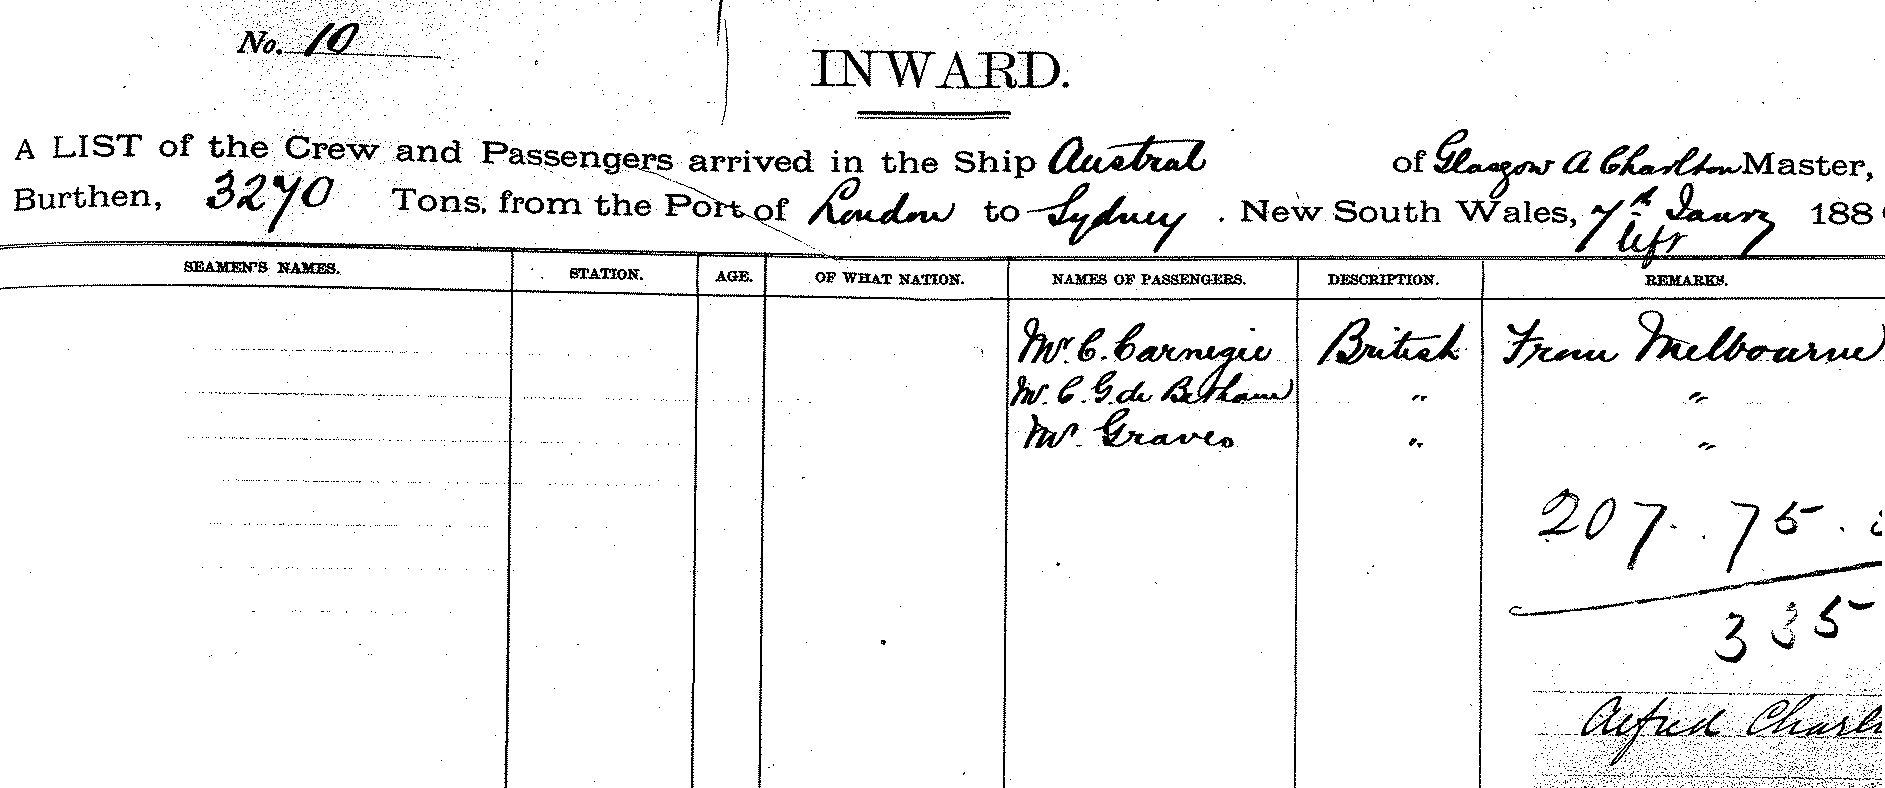 No. 10
INWARD.
A LIST of the Crew and Passengers arrived in the Ship Austral of Glasgow A Charlton Master,
Burthen, 3270 Tons, from the Port of London to Sydney . New South Wales, 7th Janry 188
SEAMEN'S NAMES. STATION. AGE. OF WHAT NATION. NAMES OF PASSENGERS. DESCRIPTION. REMARKS.
Mr. C. Carnegie British From Melbourne
Mr. C. G. de Betham " "
Mr. Graves " "
207 . 75 .
335
Alfred Charl